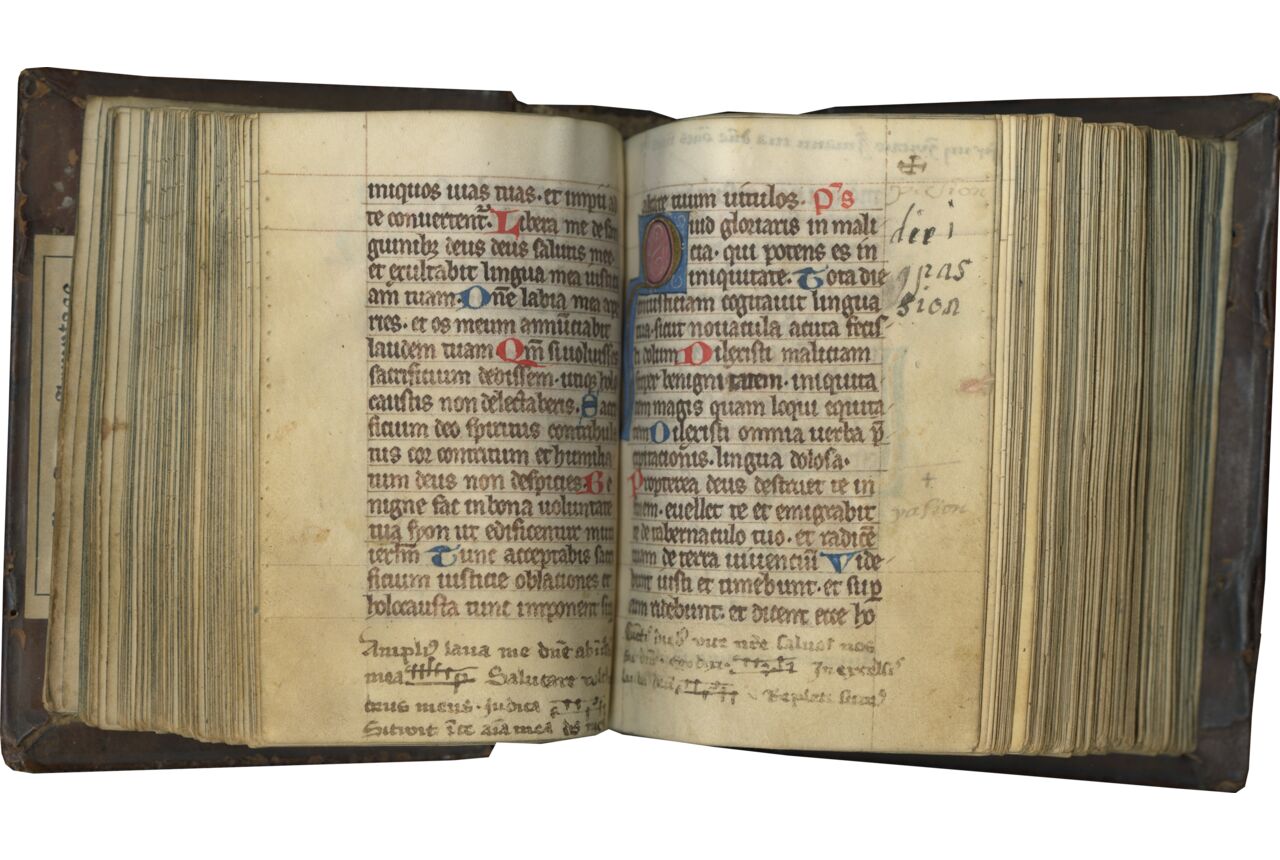 iniquos uias tuas. et impii ad
te conuertent᷑. Libera me de san
guinibꝫ deus deus salutis mee.
et exultabit lingua mea iusticiā
am tuam. Dn̄e labia mea ape
ries. et os meum annūciabit
laudem tuam Qm̄ si uoluisses
sacrificium dedissem. utiqꝫ holo
caustis non delectaberis. Sacri
ficium deo spiritus contribula
tus cor contritum et humilia
tum deus non despicies. Be
nigne fac in bona uoluntate
tua syon ut edificentur muri
ierlm̄ Tunc acceptabis sacri
ficium iusticie oblationes et
holocausta tunc imponent sup
Ampliꝰ laua me dn̄e ab
mea Salutare
deus meus. judica
Sitiuit aīa mea
altare tuum uitulos. Ps
Quid gloriaris in mali
cia. qui potens es in
iniquitate. Tota die
iniusticiam cogitauit lingua
tua. sicut nouacula acuta fecis
ti dolum Dilexisti maliciam
super benignitatem. iniquita
tem magis quam loqui equita
tem Dilexisti omnia uerba p̄
cipitacionis. lingua dolosa.
Propterea deus destruet te in
finem. euellet te et emigrabit
te de tabernaculo tuo. et radicē
tuam de terra uiuenciū Vide
bunt iusti et timebunt. et sup̱
eum ridebunt. et dicent ecce ho
nos
In excelsis
Repleti
passion
die i
passion